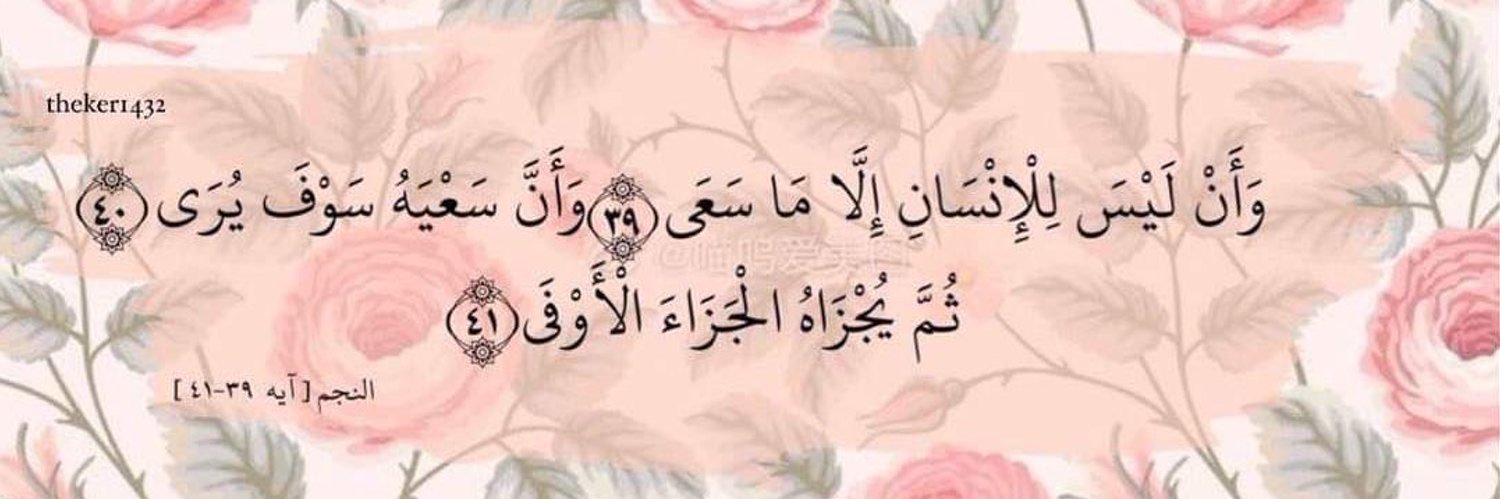 theker1432
وَأَنْ لَيْسَ لِلْإِنْسَانِ إِلَّا مَا سَعَى ﴿٣٩﴾ وَأَنَّ سَعْيَهُ سَوْفَ يُرَى ﴿٤٠﴾
ثُمَّ يُجْزَاهُ الْجَزَاءَ الْأَوْفَى ﴿٤١﴾
النجم [آيه ٣٩-٤١]